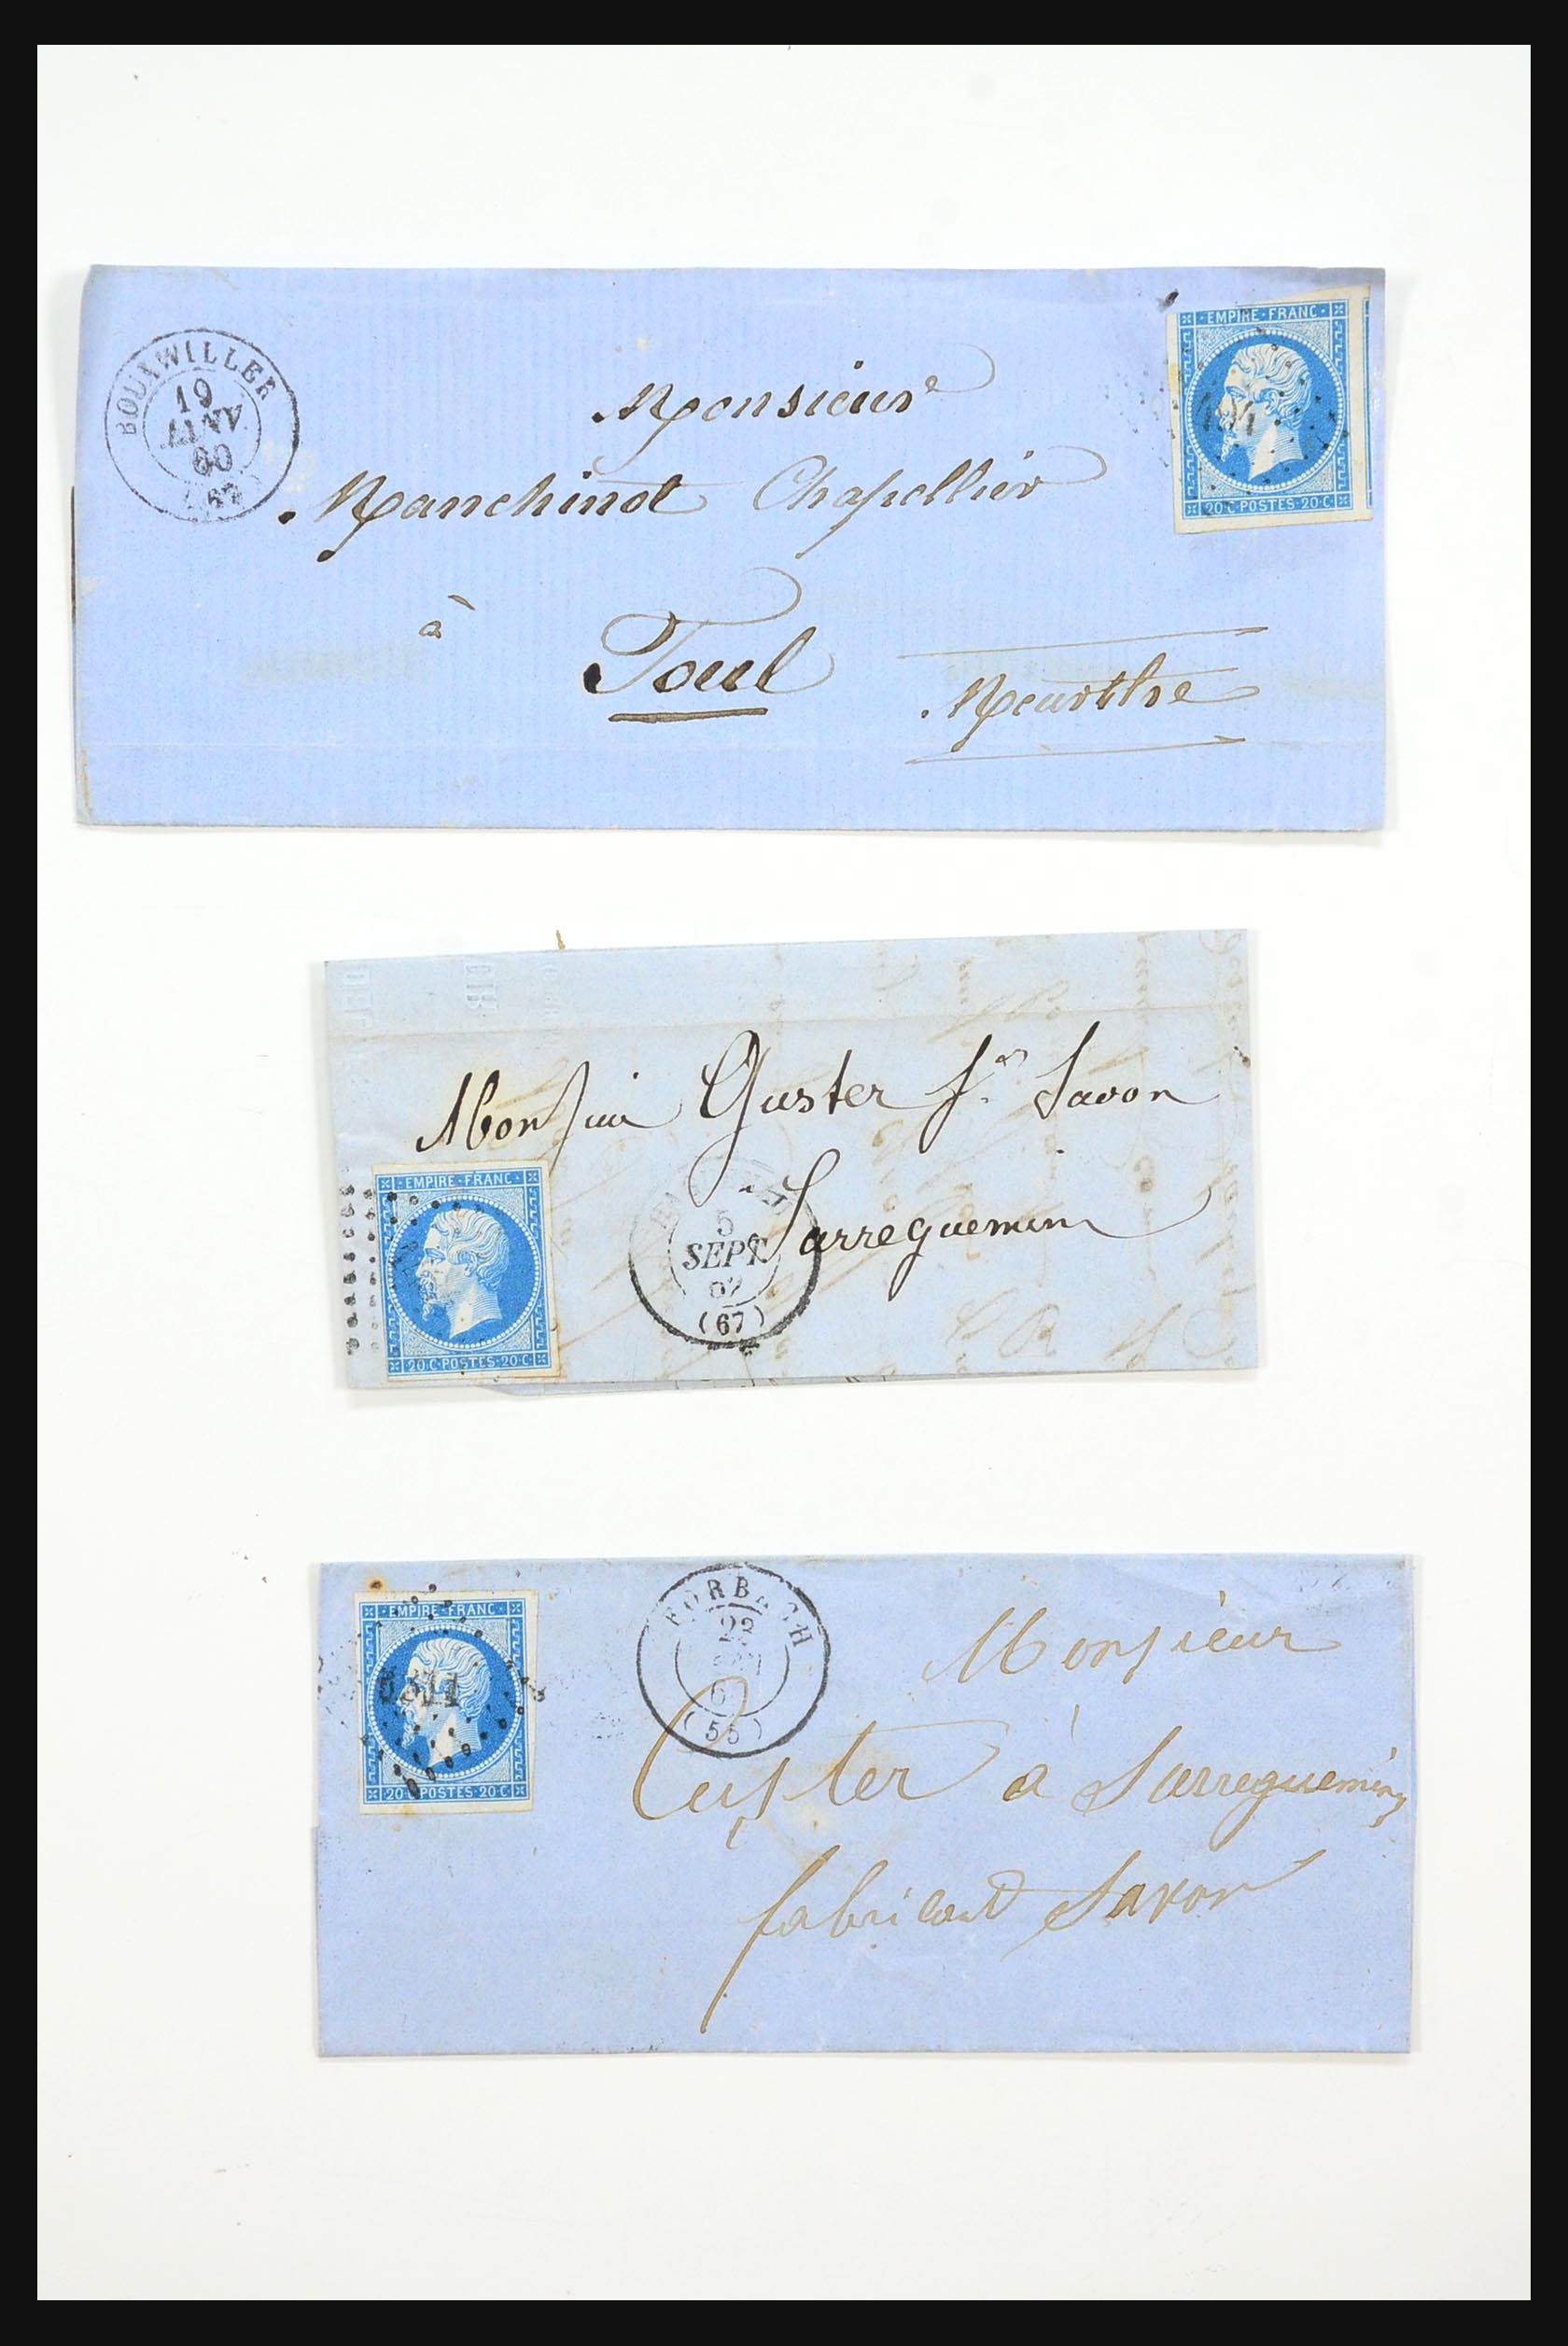 BOUXWILLER
19
JANV.
60
(67)
EMPIRE FRANC
20 C POSTES 20 C
Monsieur
Manchinot Chapellier
à
Toul
Meurthe
Monsieur Guster fr. Savon
à Sarreguemin
EMPIRE FRANC
20 C POSTES 20 C
5
SEPT.
62
(67)
EMPIRE FRANC
20 C POSTES 20 C
FORBACH
22
(55)
Monsieur
Custer à Sarreguemines
fabricant Savon